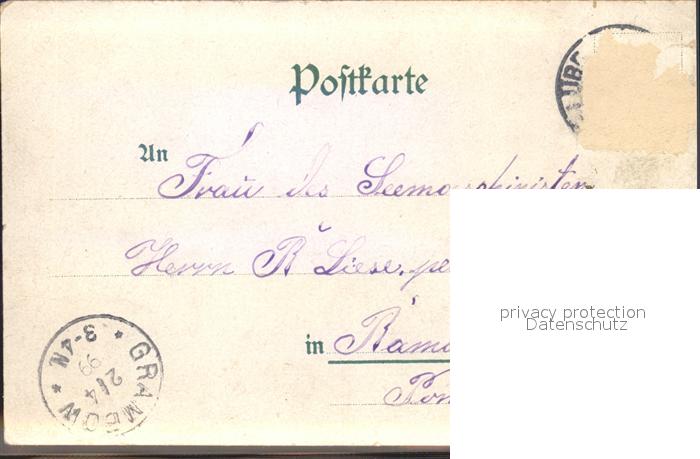 Postkarte
An Frau des Seemaschinisten
Herrn R Liese. pe
in Ram
Pom
GRAMBOW
2/4
99
3-4N
privacy protection
Datenschutz